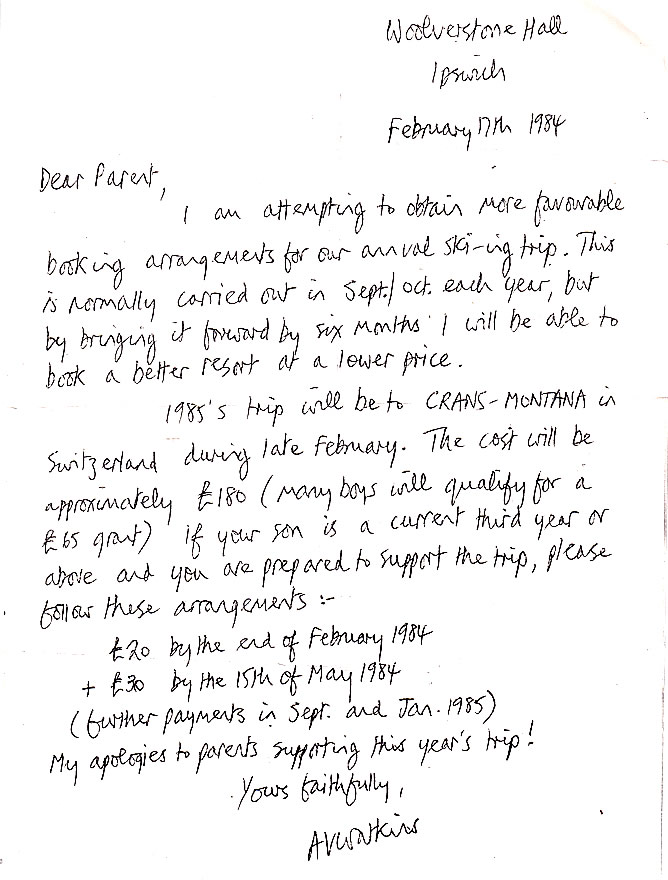 Woolverstone Hall
Ipswich
February 17th 1984
Dear Parent,
I am attempting to obtain more favourable
booking arrangements for our annual ski-ing trip. This
is normally carried out in Sept./Oct. each year, but
by bringing it forward by six months I will be able to
book a better resort at a lower price.
1985's trip will be to CRANS-MONTANA in
Switzerland during late February. The cost will be
approximately £180 (many boys will qualify for a
£65 grant) If your son is a current third year or
above and you are prepared to support the trip, please
follow these arrangements :-
£20 by the end of February 1984
+ £30 by the 15th of May 1984
(further payments in Sept. and Jan. 1985)
My apologies to parents supporting this year's trip!
Yours faithfully,
AVWatkins